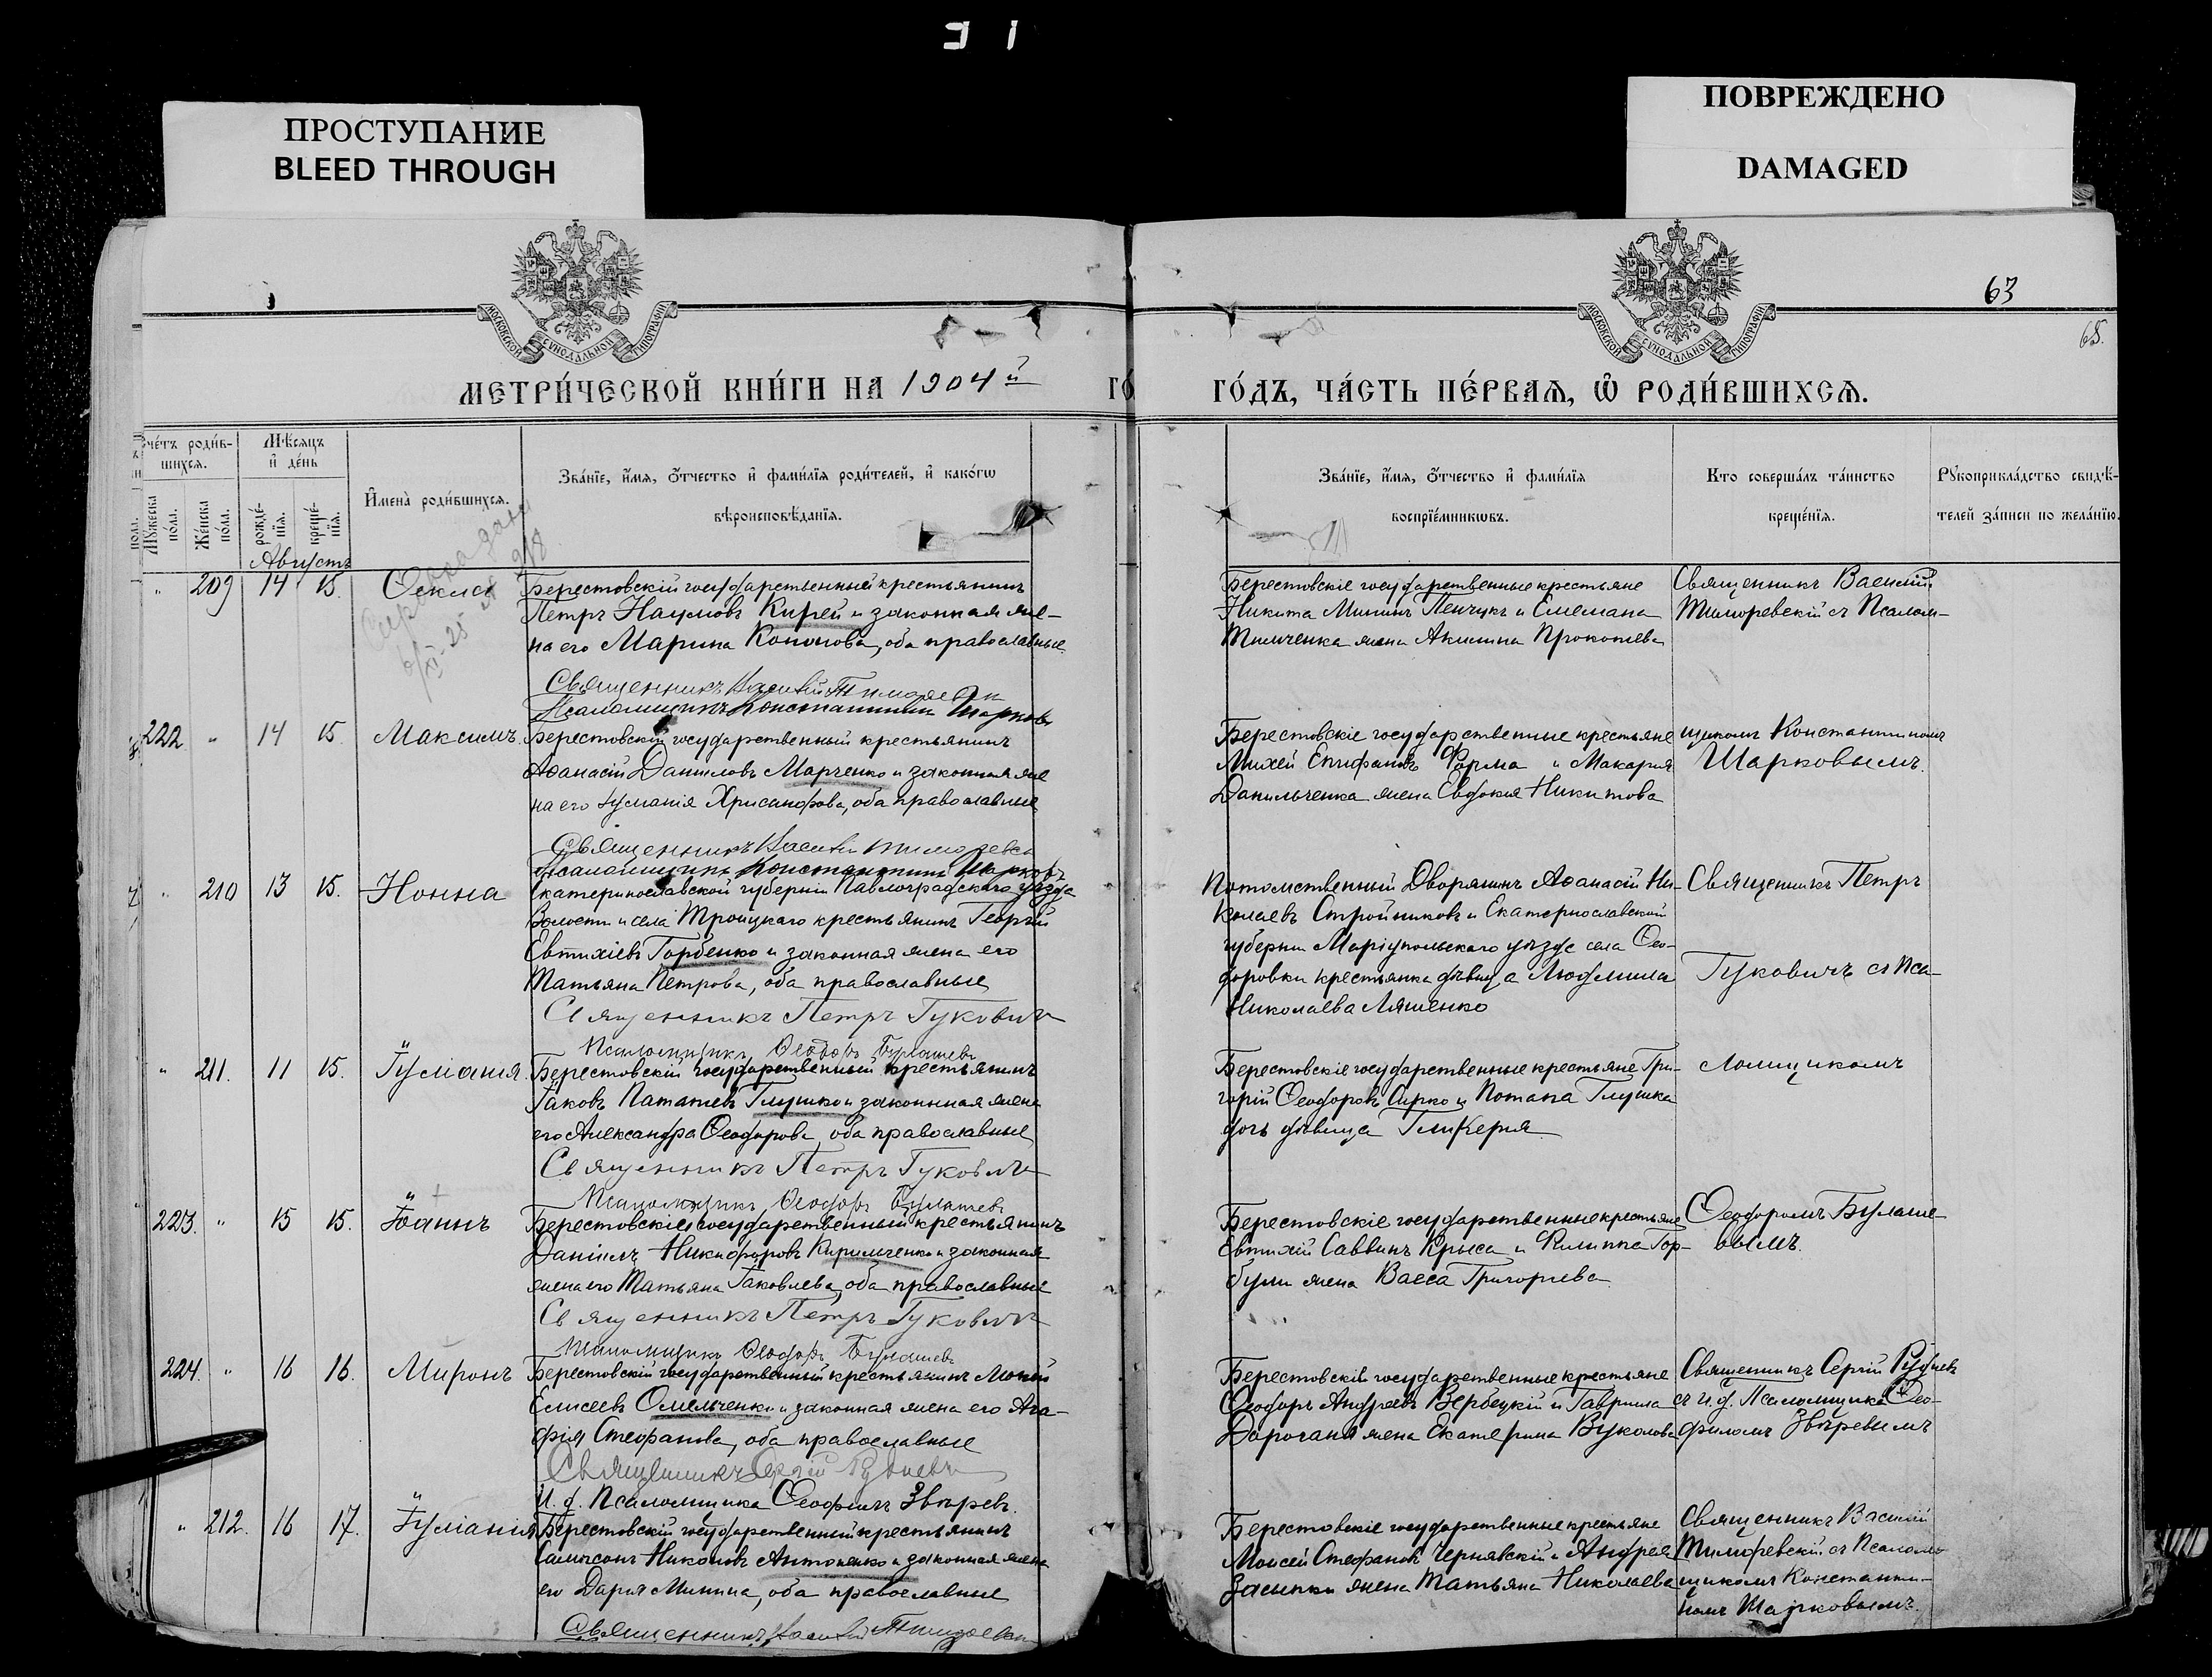 ПРОСТУПАНИЕ
BLEED THROUGH
ПОВРЕЖДЕНО
DAMAGED
63
65.
МОСКОВСКОЙ СѴНОДАЛЬНОЙ ТИПОГРАФІИ
МОСКОВСКОЙ СѴНОДАЛЬНОЙ ТИПОГРАФІИ
МЕТРИ́ЧЕСКОЙ КНИ́ГИ НА 1904й
ГО́ДЪ, ЧА́СТЬ ПЕ́РВАѦ, Ѡ҆ РОДИ́ВШИХСѦ.
Сче́тъ роди́в-
шихсѧ.
Мꙋ́жеска по́ла.
Же́нска по́ла.
Мѣ́сѧцъ и҆ де́нь
рожде́-нїѧ.
креще́-нїѧ.
И҆мена̀ роди́вшихсѧ.
Зва́нїе, и҆́мѧ, ѻ҆́тчество и҆ фами́лїѧ роди́телей, и҆ како́гѡ
вѣроисповѣ́данїѧ.
Зва́нїе, и҆́мѧ, ѻ҆́тчество и҆ фами́лїѧ
воспрїе́мникѡвъ.
Кто соверша́лъ та́инство
креще́нїѧ.
Рꙋкоприкла́дство свидѣ́-
телей за́писи по жела́нїю.
Августъ
209 14 15. Ѳекла
Берестовскій государственный крестьянинъ
Петръ Наумовъ Кирей и законная же-
на его Марина Кононова, оба православные
Священникъ Василій Тимофеевскій
Псаломщикъ Константинъ Шарковъ
Берестовскіе государственные крестьяне
Никита Мининъ Пенчукъ и
жена Акилина Прокопіева
Священникъ Василій
Тимофеевскій съ Псалом-
222 " 14 15. Максимъ.
Берестовскій государственный крестьянинъ
Аѳанасій Даниловъ Марченко и законная же
на его Іуліанія Хрисанфова, оба православные
Священникъ Василій Тимофеевскій
Псаломщикъ Константинъ Шарковъ
Берестовскіе государственные крестьяне
Михей Епифановъ Форма и Макарія
Данильченка жена Евдокія Никитова
щикомъ Константиномъ
Шарковымъ.
" 210 13 15. Нонна
Екатеринославской губерніи Павлоградскаго уѣзда
Волости и села Троицкаго крестьянинъ Георгій
Евтихіевъ Горбенко и законная жена его
Татьяна Петрова, оба православные
Священникъ Петръ Гуковичъ
Псаломщикъ Ѳеодоръ Булашевъ
Потомственный Дворянинъ Аѳанасій Ни-
колаевъ Стройниковъ и Екатеринославской
губерніи Маріупольскаго уѣзда села Ѳео-
доровки крестьянка дѣвица Людмила
Николаева Ляшенко
Священникъ Петръ
Гуковичъ съ Пса-
" 211. 11 15. Іуліанія
Берестовскій государственный крестьянинъ
Іаковъ Глушко и законная жена
его Александра Ѳеодорова, оба православные
Священникъ Петръ Гуковичъ
Псаломщикъ Ѳеодоръ Булашевъ
Берестовскіе государственные крестьяне Гри-
горій Ѳеодоровъ Сирко и Потапа Глушка
дочь дѣвица Гликерія
ломщикомъ
223. " 15 15. Іоаннъ
Берестовскій государственный крестьянинъ
Даніилъ Никифоровъ Кирильченко и законная
жена его Татьяна Іаковлева, оба православные
Священникъ Петръ Гуковичъ
Псаломщикъ Ѳеодоръ Булашевъ
Берестовскіе государственные крестьяне
Евтихій Саввинъ Крыса и Филиппа Гор-
були жена Васса Григорьева
Ѳеодоромъ Булаше-
вымъ.
224. " 16 16. Миронъ
Берестовскій государственный крестьянинъ Мокій
Елисеевъ Омельченко и законная жена его Ага-
фія Стефанова, оба православные
Священникъ Сергій Рудневъ
И. д. Псаломщика Ѳеофилъ Звѣревъ.
Берестовскіе государственные крестьяне
Ѳеодоръ Андреевъ Вербецкій и Гавріила
Дорогана жена Екатерина Вуколова
Священникъ Сергій Рудневъ
съ И. д. Псаломщика Ѳео-
филомъ Звѣревымъ
" 212. 16 17. Іуліанія
Берестовскій государственный крестьянинъ
Сампсонъ Никоновъ Антоненко и законная жена
его Дарія Минина, оба православные
Священникъ Василій Тимофеевскій
Берестовскіе государственные крестьяне
Моисей Стефановъ Чернявскій и Андрея
Засыпки жена Татьяна Николаева
Священникъ Василій
Тимофеевскій съ Псалом-
щикомъ Константи-
номъ Шарковымъ.